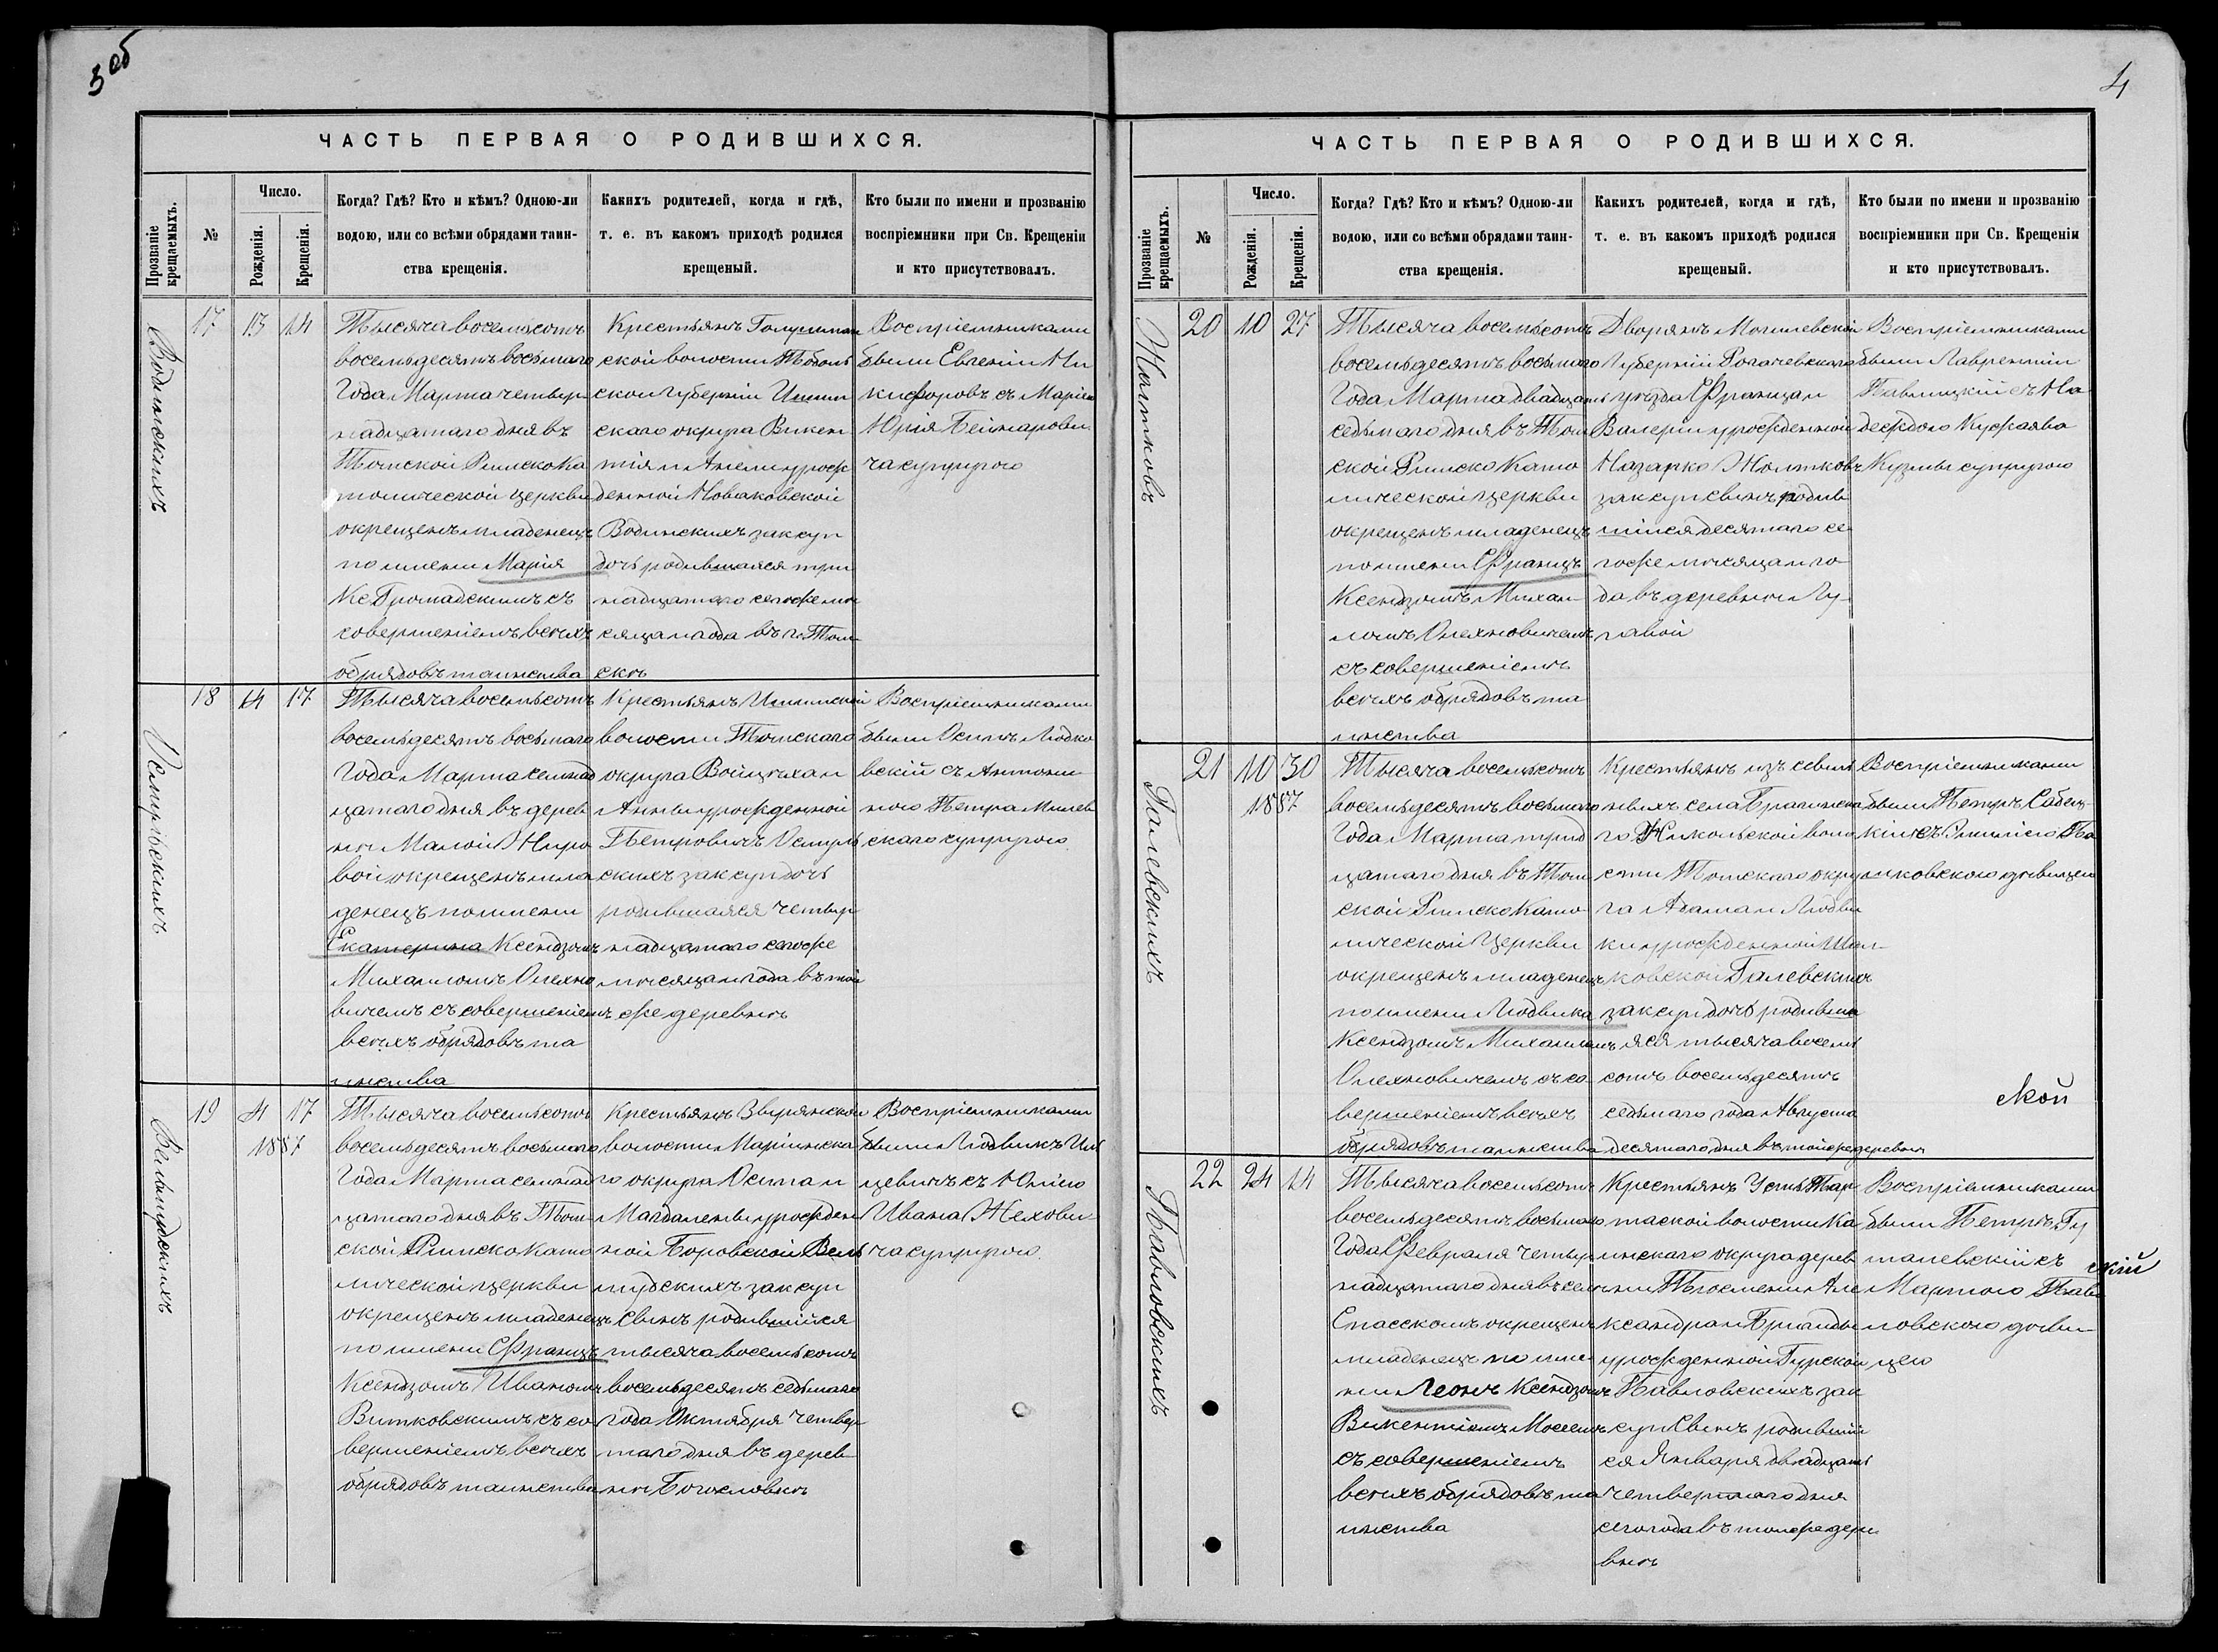 3 об
ЧАСТЬ ПЕРВАЯ О РОДИВШИХСЯ.
Прозваніе крещаемыхъ.
№
Число.
Рожденія.
Крещенія.
Когда? Гдѣ? Кто и кѣмъ? Одною-ли
водою, или со всѣми обрядами таин-
ства крещенія.
Какихъ родителей, когда и гдѣ,
т. е. въ какомъ приходѣ родился
крещеный.
Кто были по имени и прозванію
воспріемники при Св. Крещеніи
и кто присутствовалъ.
Водынскихъ
17
13
14
Тысяча восемьсотъ
восемьдесятъ восьмаго
Года Марта четыр
надцатаго дня въ
Томской Римско Ка
толической церкви
окрещенъ младенецъ
по имени Марія
Кс. Громадскимъ съ
совершеніемъ всѣхъ
обрядовъ таинства
Крестьянъ
ской волости Тоболь
ской Губерніи Ишим
скаго округа Викен
тія и Анели урож
денной Новаковской
Водынскихъ зак суп
дочь родившаяся три
надцатаго сего же мѣ
сяца и года въ г. Том
скѣ
Воспріемниками
были Евгеній Ни
кифоровъ съ Маріею
Юрія Бейнарови
ча супругою
18
14
17
Тысяча восемьсотъ
восемьдесятъ восьмаго
Года Марта семнад
цатаго дня въ дерев
нѣ Малой Жиро
вой окрещенъ мла
денецъ по имени
Екатерина Ксендзомъ
Михаиломъ Олехно
вичемъ съ совершеніемъ
всѣхъ обрядовъ та
инства
Крестьянъ Ишимской
волости Томскаго
округа Войцѣха и
Анны урожденной
Петровичъ
скихъ зак суп дочь
родившаяся четыр
надцатаго сего же
мѣсяца и года въ той
же деревнѣ
Воспріемниками
были Осипъ Людко
вскій съ Антони
ною Петра Милев
скаго супругою
19
4
17
1887
Тысяча восемьсотъ
восемьдесятъ восьмаго
Года Марта семнад
цатаго дня въ Том
ской Римско Като
лической церкви
окрещенъ младенецъ
по имени Францъ
Ксендзомъ Иваномъ
Витковскимъ съ со
вершеніемъ всѣхъ
обрядовъ таинства
Крестьянъ Зырянской
волости Маріинска
го округа Осипа и
Магдалены урожден
ной Боровской Вель
скихъ зак суп
Сынъ родившійся
тысяча восемьсотъ
восемьдесятъ седьмаго
года Октября четвер
таго дня въ дерев
нѣ Богословкѣ
Воспріемниками
были Людвикъ Иль
цевичъ съ Юліею
Ивана Жехови
ча супругою
4
ЧАСТЬ ПЕРВАЯ О РОДИВШИХСЯ.
Прозваніе крещаемыхъ.
№
Число.
Рожденія.
Крещенія.
Когда? Гдѣ? Кто и кѣмъ? Одною-ли
водою, или со всѣми обрядами таин-
ства крещенія.
Какихъ родителей, когда и гдѣ,
т. е. въ какомъ приходѣ родился
крещеный.
Кто были по имени и прозванію
воспріемники при Св. Крещеніи
и кто присутствовалъ.
Жолтковъ
20
10
27
Тысяча восемьсотъ
восемьдесятъ восьмаго
Года Марта двадцать
седьмаго дня въ Том
ской Римско Като
лической церкви
окрещенъ младенецъ
по имени Францъ
Ксендзомъ Михаи
ломъ Олехновичемъ
съ совершеніемъ
всѣхъ обрядовъ та
инства
Дворянъ Могилевской
Губерніи Рогачевскаго
уѣзда Франца и
Валеріи урожденной
Назарко Жолтковъ
зак суп сынъ родив
шійся десятаго се
го же мѣсяца и го
да въ деревнѣ Лу
говой
Воспріемниками
были Лаврентій
Павлицкій съ На
деждою
Кузьмы супругою
Галевскихъ
21
10
30
1887
Тысяча восемьсотъ
восемьдесятъ восьмаго
Года Марта трид
цатаго дня въ Том
ской Римско Като
лической Церкви
окрещенъ младенецъ
по имени Людвика
Ксендзомъ Михаиломъ
Олехновичемъ съ со
вершеніемъ всѣхъ
обрядовъ таинства
Крестьянъ изъ ссыль
ныхъ села
го Никольской воло
сти Томскаго окру
га Адама и Людви
ки урожденной
ковской Галевскихъ
зак суп дочь родивша
яся тысяча восемь
сотъ восемьдесятъ
седьмаго года Августа
десятаго дня въ той же деревнѣ
Воспріемниками
были Петръ
кій съ Эмиліею
ликовскою дѣвицею
ской
Павловскихъ
22
24
14
Тысяча восемьсотъ
восемьдесятъ восьмаго
Года Февраля четыр
надцатаго дня въ селѣ
Спасскомъ окрещенъ
младенецъ по име
ни Леонъ Ксендзомъ
Викентіемъ
съ совершеніемъ
всѣхъ обрядовъ та
инства
Крестьянъ Усть Тар
таской волости Ка
инскаго округа дерев
ни Тюсмени Але
ксандра и
урожденной Гурской
Павловскихъ зак
суп Сынъ родившій
ся Января двадцать
четвертаго дня
сего года въ той же дере
внѣ
Воспріемниками
были Петръ Гу
талевскій съ
Мартою Пав
ловскою дѣви
цею
скій